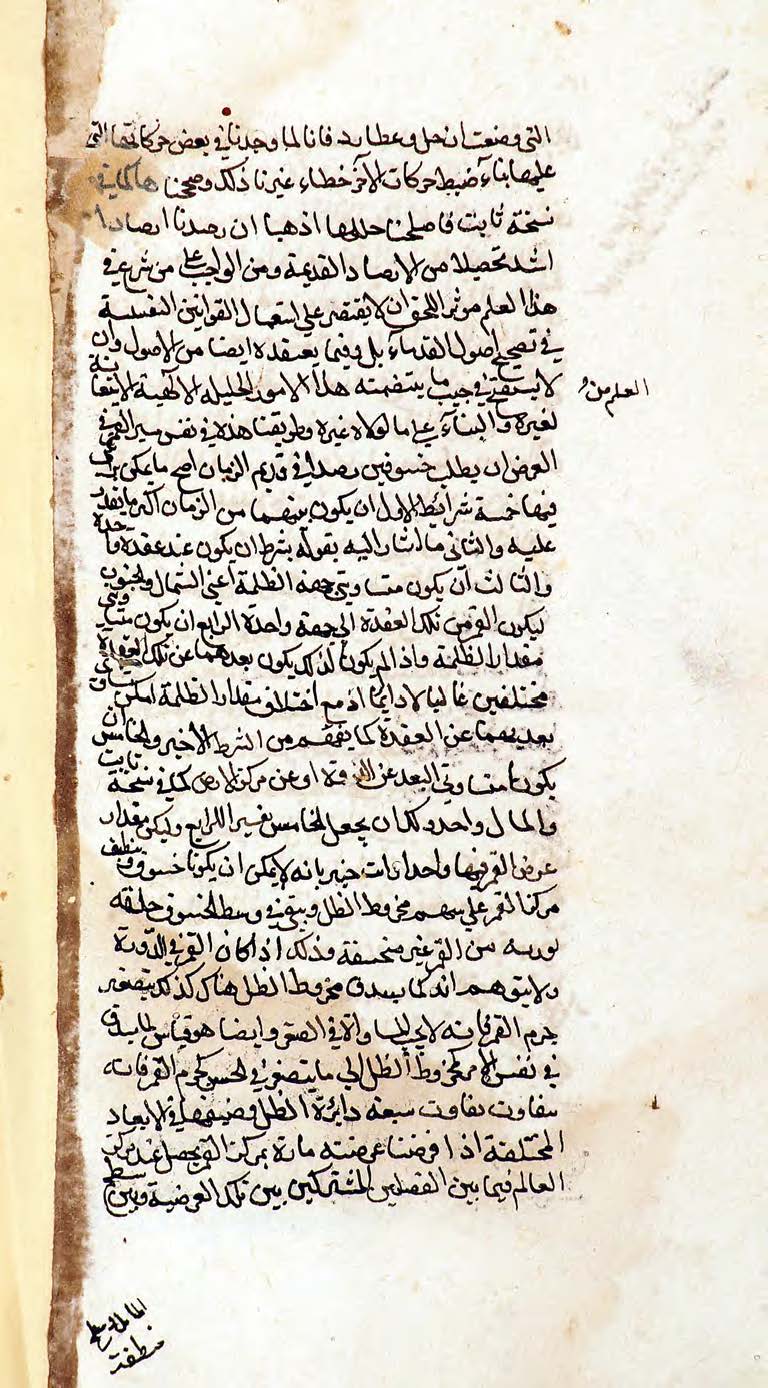 التى وضعت لزحل وعطارد فانا لما وجدنا فى بعض حركاتهما التى
عليها بناء ضبط حركات الآخر خطاء غيرنا ذلك وصححناها كما فى
نسخة ثابت فاصلحنا حالهما اذ هيا ان رصدنا ارصادا
اشد تحصيلا من الارصاد القديمة ومن الواجب على من شرع فى
هذا العلم مؤثر اللحق ان لا يقتصر على استعمال القوانين النفيسة
فى تصحيح اصول القدماء بل وفيما يعتقده ايضا من الاصول وان
لا يستقبح فى جنب ما يتضمنه هذا الامور الجليلة الالهية الانتقا
لغيره والبناء على ما قوله غيره وطريقنا هذه فى نفس سير القمر فى
العرض ان يطلب خسوفين رصدا فى قديم الزمان اصح ما يمكن
فيهما خمسة شرائط الاول ان يكون بينهما من الزمان اكثر ما يقدر
عليه والثانى ما اشار اليه بقوله بشرط ان يكون عند عقدة واحدة
والثالث ان يكون متساويتى جهة الظلمة اعنى الشمال والجنوب
ليكون القمر من تلك العقدة الى جهة واحدة الرابع ان يكون متساويتى
مقدار الظلمة واذا لم يكونا كذلك يكون بعدهما عن تلك العقدة
مختلفين غالبا لا دايما اذ مع اختلاف مقدار الظلمة امكن تساوى
بعديهما عن العقدة كما يفهم من الشرط الاخير والخامس ان
يكونا متساوتى البعد عن الذروة او عن مركز الارض كما فى نسخة ثابت
والمال واحد ولك ان يجعل الخامس تفسير الرابع وليكن مقدار
عرض القمر فيهما واحدا وانت خبير بانه لا يمكن ان يكونا خسوف وينطبق
مركز القمر على سهم مخروط الظل ويبقى فى وسط الخسوف حلقة
نورية من القمر غير منخسفة وذلك اذا كان القمر فى الذروة
ولا يتوهم انه كما يستدق مخروط الظل هناك كذلك يتصغر
جرم القمر فانه لا يجب المساواة فى الصغر وايضا هو قياس لما يدق
فى نفس الامر كمخروط الظل الى ما يتصغر فى الحس كجرم القمر فانه
يتفاوت تفاوت سعة دايرة الظل وضيقها فى الابعاد
المختلفة اذا فرضنا عرضية مارة بمركز القمر يحصل عند مركز
العالم فيما بين الفصلين المشتركين بين تلك العرضية وبين سطح
العلم من
المايل وسطح
منطقة